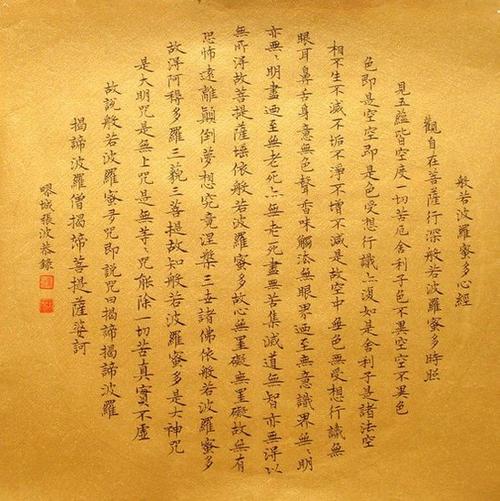 般若波羅蜜多心經
觀自在菩薩行深般若波羅蜜多時照
見五蘊皆空度一切苦厄舍利子色不異空空不異色
色即是空空即是色受想行識亦復如是舍利子是諸法空
相不生不滅不垢不淨不增不減是故空中無色無受想行識無
眼耳鼻舌身意無色聲香味觸法無眼界迺至無意識界無、明
亦無、明盡迺至無老死亦無老死盡無苦集滅道無智亦無得以
無所得故菩提薩埵依般若波羅蜜多故心無罣礙無罣礙故無有
恐怖遠離顛倒夢想究竟涅槃三世諸佛依般若波羅蜜多
故得阿耨多羅三藐三菩提故知般若波羅蜜多是大神咒
是大明咒是無上咒是無等、咒能除一切苦真實不虛
故說般若波羅蜜多咒即說咒曰揭諦揭諦波羅
揭諦波羅僧揭諦菩提薩婆訶
疁城張波恭錄